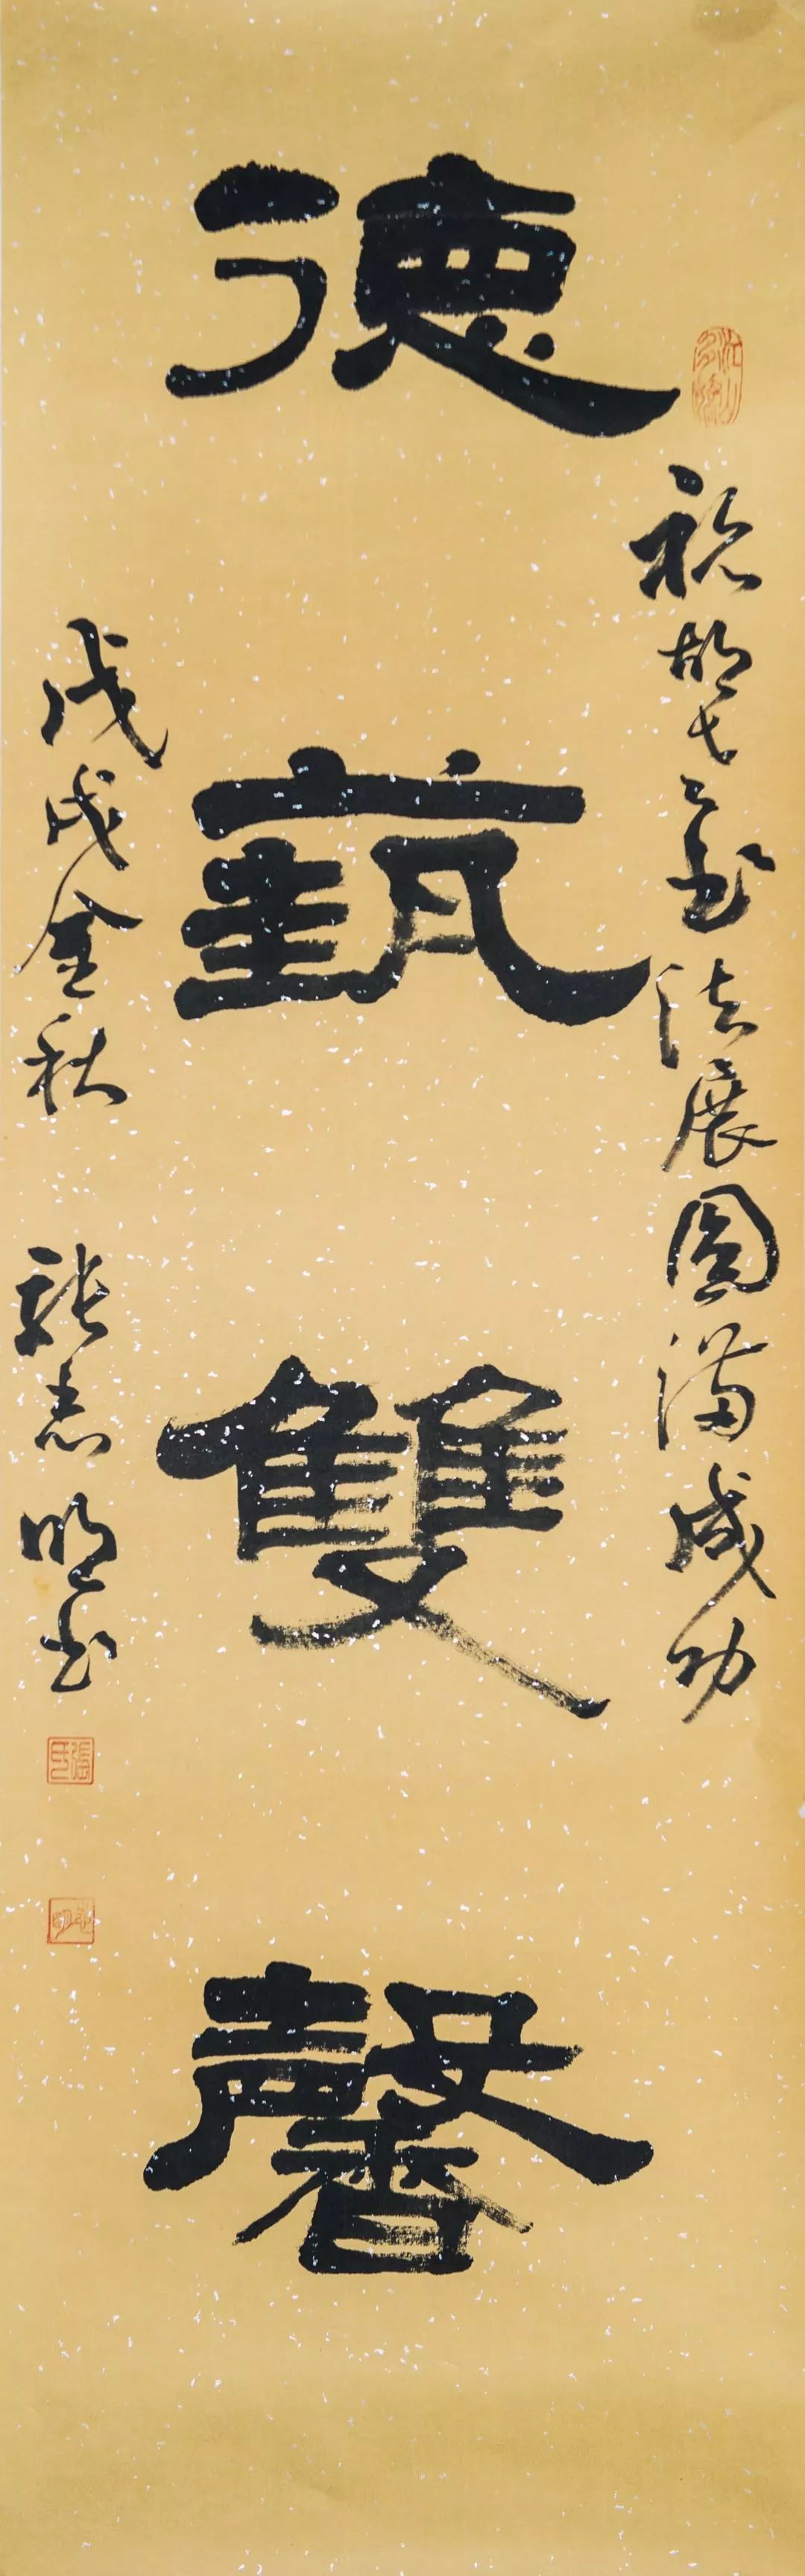 德藝雙馨
祝胡 法展圓滿成功
戊戌金秋 張志明书
張